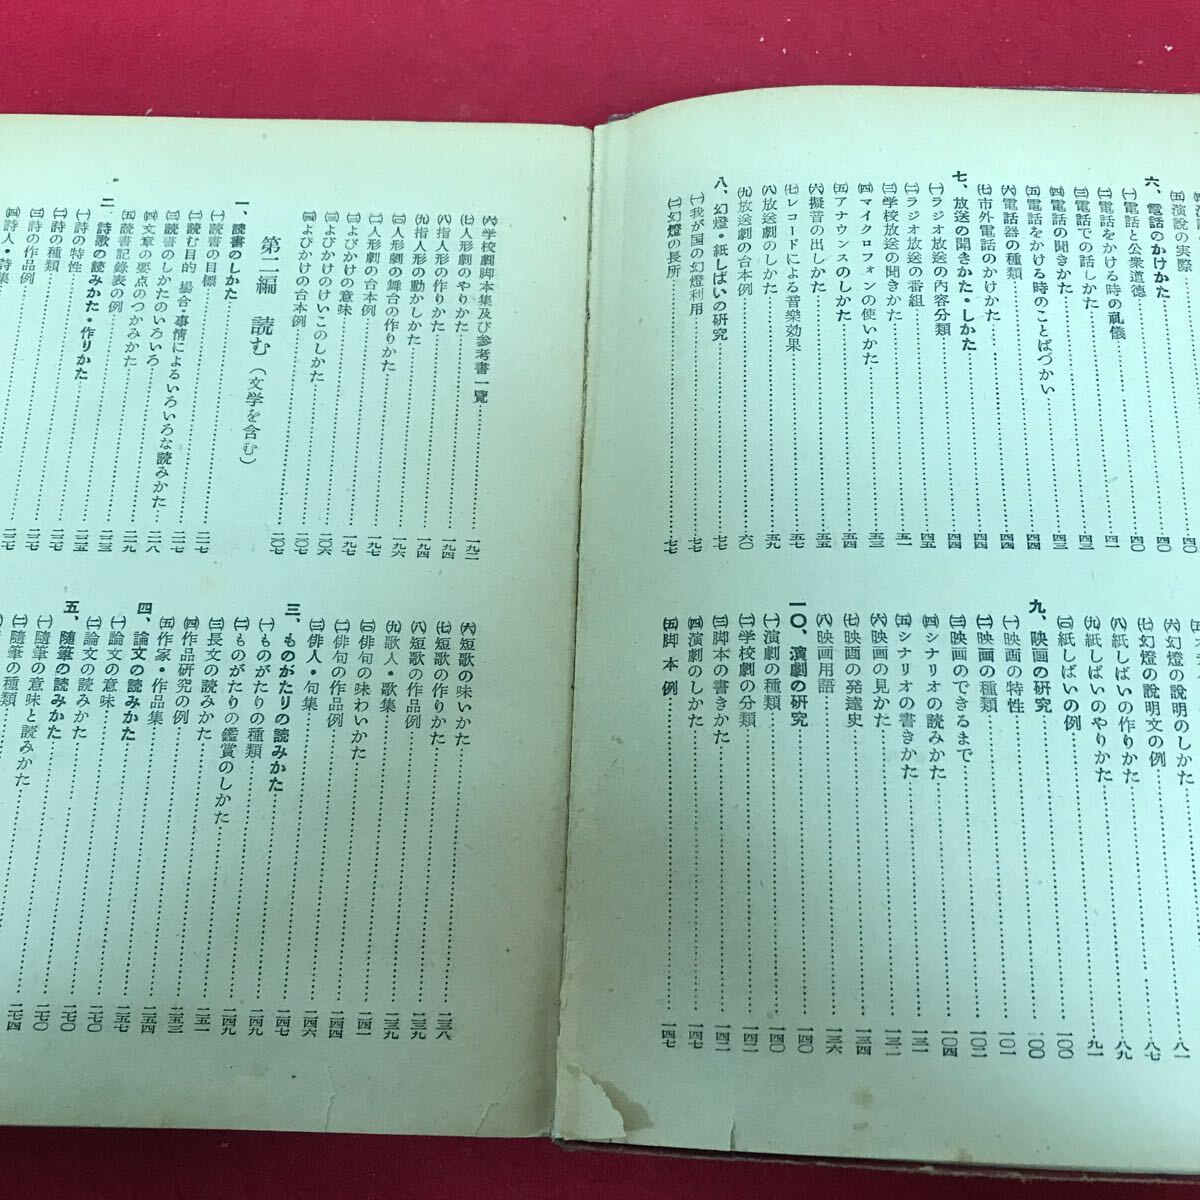 ㈤演説の実際……四〇
六、電話のかけかた……四〇
㈠電話と公衆道徳……四〇
㈡電話をかける時の礼儀……四一
㈢電話での話しかた……四三
㈣電話の聞きかた……四三
㈤電話をかける時のことばづかい……四四
㈥電話器の種類……四四
㈦市外電話のかけかた……四四
七、放送の聞きかた・しかた……四四
㈠ラジオ放送の内容分類……四四
㈡ラジオ放送の番組……四五
㈢学校放送の聞きかた……五一
㈣マイクロフォンの使いかた……五三
㈤アナウンスのしかた……五四
㈥擬音の出しかた……五五
㈦レコードによる音樂効果……五七
㈧放送劇のしかた……五九
㈨放送劇の台本例……六〇
八、幻燈・紙しばいの研究……七七
㈠我が国の幻燈利用……七七
㈡幻燈の長所……七七
㈥幻燈の説明のしかた……八一
㈦幻燈の説明文の例……八七
㈧紙しばいの作りかた……八九
㈨紙しばいのやりかた……九一
㈩紙しばいの例……一〇〇
九、映画の研究……一〇〇
㈠映画の特性……一〇一
㈡映画の種類……一〇二
㈢映画のできるまで……一〇四
㈣シナリオの読みかた……一三一
㈤シナリオの書きかた……一三一
㈥映画の見かた……一三二
㈦映画の発達史……一三四
㈧映画用語……一三六
一〇、演劇の研究……一四〇
㈠演劇の種類……一四〇
㈡学校劇の分類……一四二
㈢脚本の書きかた……一四二
㈣演劇のしかた……一四七
㈤脚本例……一四七
㈥学校劇脚本集及び参考書一覽……一九二
㈦人形劇のやりかた……一九四
㈧指人形の作りかた……一九四
㈨指人形の動かしかた……一九四
人形劇の舞台の作りかた……一九六
人形劇の台本例……一九七
よびかけの意味……一九七
よびかけのけいこのしかた……二〇六
よびかけの台本例……二〇七
第二編 読む（文学を含む）
一、読書のしかた……二〇七
㈠読書の目標……二一七
㈡読む目的・場合・事情によるいろいろな読みかた……二一七
㈢読書のしかたのいろいろ……二一八
㈣文章の要点のつかみかた……二一九
㈤読書記錄表の例……二二三
二、詩歌の読みかた・作りかた……二二五
㈠詩の特性……二二五
㈡詩の種類……二二七
㈢詩の作品例……二二七
㈣詩人・詩集……二三七
㈥短歌の味いかた……二三八
㈦短歌の作りかた……二三九
㈧短歌の作品例……二三九
㈨歌人・歌集……二四一
㈩俳句の味わいかた……二四一
俳句の作品例……二四四
俳人・句集……二四六
三、ものがたりの読みかた……二四七
㈠ものがたりの種類……二四九
㈡ものがたりの鑑賞のしかた……二四九
㈢長文の読みかた……二五一
㈣作品研究の例……二五三
㈤作家・作品集……二五四
四、論文の読みかた……二五七
㈠論文の意味……二七〇
㈡論文の読みかた……二七〇
五、隨筆の読みかた……二七〇
㈠隨筆の意味と読みかた……二七〇
㈡隨筆の種類……二七四